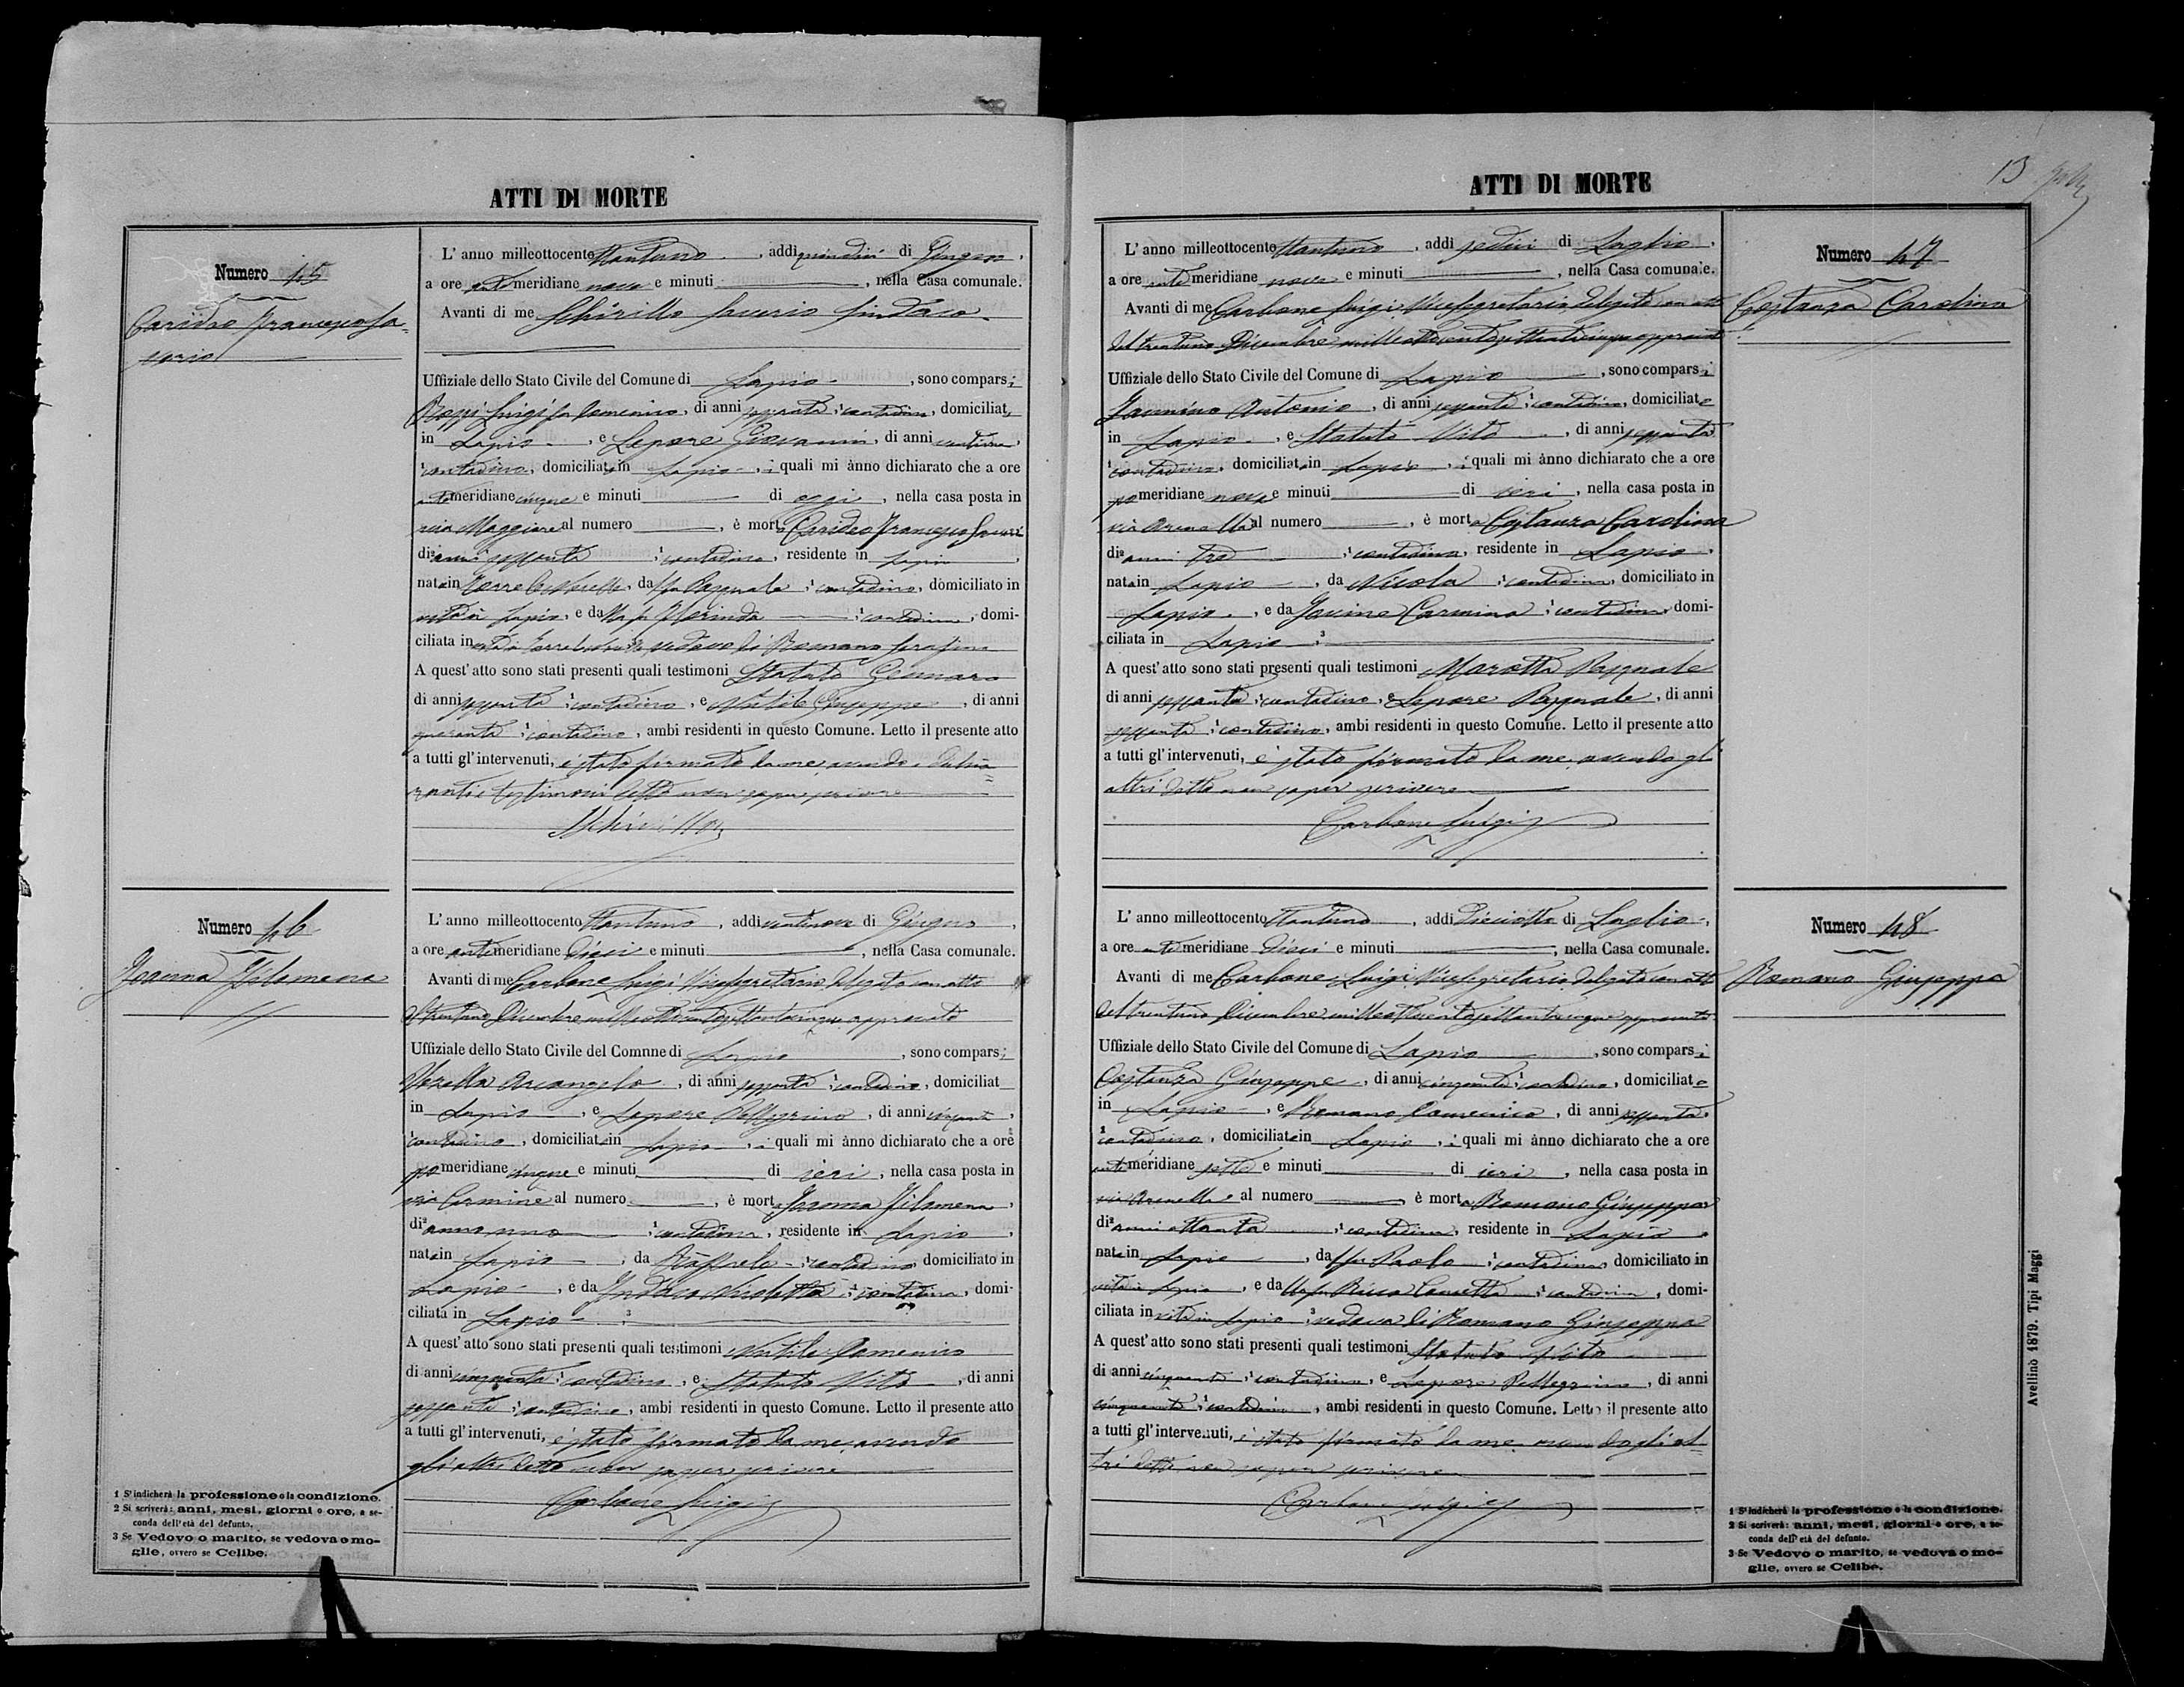 ATTI DI MORTE
Numero 45
Carideo Francesco Sa=
verio
L'anno milleottocento ottantuno, addì quindici di Giugno,
a ore antimeridiane nove e minuti, nella Casa comunale.
Avanti di me Schirillo Saverio Sindaco
Uffiziale dello Stato Civile del Comune di Lapio, sono comparsi
Rozzi Luigi fu Domenico, di anni sessanta, contadino, domiciliato
in Lapio, e Lepore Giovanni, di anni,
contadino, domiciliato in Lapio, i quali mi ànno dichiarato che a ore
antimeridiane cinque e minuti di oggi, nella casa posta in
via Maggiore al numero, è morto Carideo Francesco Saveri
di anni sessanta, contadino, residente in Lapio,
nato in Torre le Nocelle, da fu Pasquale, contadino, domiciliato in
vita in Lapio, e da fu Clorinda, contadina, domi-
ciliata in vita in, vedovo di Romano Serafina
A quest'atto sono stati presenti quali testimoni Statuto Gennaro
di anni sessanta, contadino, e Natile Giuseppe, di anni
quaranta, contadino, ambi residenti in questo Comune. Letto il presente atto
a tutti gl'intervenuti, è stato firmato da me, avendo i dichia=
ranti e testimoni detto non saper scrivere
Schirillo
Numero 46
Joanna Filomena
L'anno milleottocento ottantuno, addì ventinove di Giugno,
a ore antimeridiane dieci e minuti, nella Casa comunale.
Avanti di me Carbone Luigi Vicesegretario delegato con atto
del trentuno Dicembre milleottocentosettantacinque approvato
Uffiziale dello Stato Civile del Comnne di Lapio, sono comparsi
Arcangelo, di anni sessanta, contadino, domiciliat
in Lapio, e Lepore Pellegrino, di anni cinquanta,
contadino, domiciliato in Lapio, i quali mi ànno dichiarato che a ore
pomeridiane cinque e minuti di ieri, nella casa posta in
via Carmine al numero, è morta Joanna Filomena,
di anno uno, contadina, residente in Lapio,
nata in Lapio, da Raffaele, contadino, domiciliato in
Lapio, e da Nicoletta, contadina, domi-
ciliata in Lapio
A quest'atto sono stati presenti quali testimoni Natile Domenico
di anni cinquanta, contadino, e Statuto Vito, di anni
sessanta, contadino, ambi residenti in questo Comune. Letto il presente atto
a tutti gl'intervenuti, è stato firmato da me avendo
gli altri detto non saper scrivere
Carbone Luigi
1 S'indicherà la professione o la condizione.
2 Si scriverà: anni, mesi, giorni o ore, a se-
conda dell'età del defunto.
3 Se Vedovo o marito, se vedova o mo-
glie, ovvero se Celibe.
13
ATTI DI MORTE
L'anno milleottocento ottantuno, addì sedici di Luglio,
a ore antimeridiane nove e minuti, nella Casa comunale.
Avanti di me Carbone Luigi Vicesegretario delegato con atto
del trentuno Dicembre milleottocentosettantacinque approvato
Uffiziale dello Stato Civile del Comune di Lapio, sono comparsi
Jannino Antonio, di anni sessanta, contadino, domiciliato
in Lapio, e Statuto Vito, di anni sessanta
contadino, domiciliato in Lapio, i quali mi ànno dichiarato che a ore
pomeridiane nove e minuti di ieri, nella casa posta in
via Arenella al numero, è morta Costanza Carolina
di anni tre, contadina, residente in Lapio,
nata in Lapio, da Nicola, contadino, domiciliato in
Lapio, e da Jovine Carmina, contadina, domi-
ciliata in Lapio
A quest'atto sono stati presenti quali testimoni Marotta Pasquale
di anni sessanta, contadino, e Lepore Pasquale, di anni
sessanta, contadino, ambi residenti in questo Comune. Letto il presente atto
a tutti gl'intervenuti, è stato firmato da me, avendo gli
altri detto non saper scrivere
Carbone Luigi
Numero 47
Costanza Carolina
L'anno milleottocento ottantuno, addì Dieciotto di Luglio,
a ore antimeridiane dieci e minuti, nella Casa comunale.
Avanti di me Carbone Luigi Vicesegretario delegato con atto
del trentuno Dicembre milleottocentosettantacinque approvato
Uffiziale dello Stato Civile del Comune di Lapio, sono comparsi
Costanza Giuseppe, di anni cinquanta, contadino, domiciliato
in Lapio, e Romano Domenico, di anni sessanta,
contadino, domiciliato in Lapio, i quali mi ànno dichiarato che a ore
antimeridiane sette e minuti di ieri, nella casa posta in
via Arenella al numero, è morta Romano Giuseppa
di anni ottanta, contadina, residente in Lapio,
nata in Lapio, da fu Paolo, contadino, domiciliato in
vita in Lapio, e da fu Concetta, contadina, domi-
ciliata in vita in Lapio, vedova di Romano Giuseppe
A quest'atto sono stati presenti quali testimoni Statuto Vito
di anni cinquanta, contadino, e Lepore Pellegrino, di anni
cinquanta, contadino, ambi residenti in questo Comune. Letto il presente atto
a tutti gl'intervenuti, è stato firmato da me avendo gli al=
tri detto non saper scrivere
Carbone Luigi
Numero 48
Romano Giuseppa
1 S'indicherà la professione o la condizione.
2 Si scriverà: anni, mesi, giorni o ore, a se-
conda dell'età del defunto.
3 Se Vedovo o marito, se vedova o mo-
glie, ovvero se Celibe.
Avellino 1879. Tipi Maggi